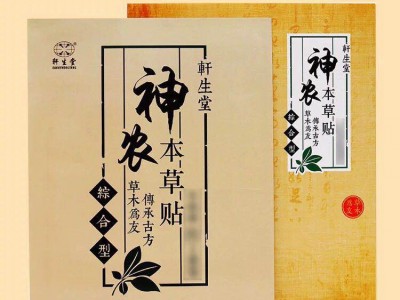 軒生堂
軒生堂
神农
本草贴
傳承古方
草木爲友
綜合型
軒生堂
神农
本草贴
傳承古方
草木爲友
綜合型